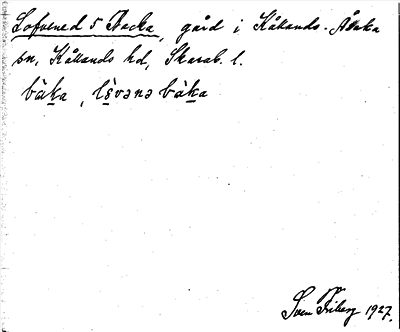 Lofvened 5 Backa, gård i Kållands-Åsaka
sn, Kållands hd, Skarab. l.
bàka, lèvənə bàka
Sven Friberg 1927.